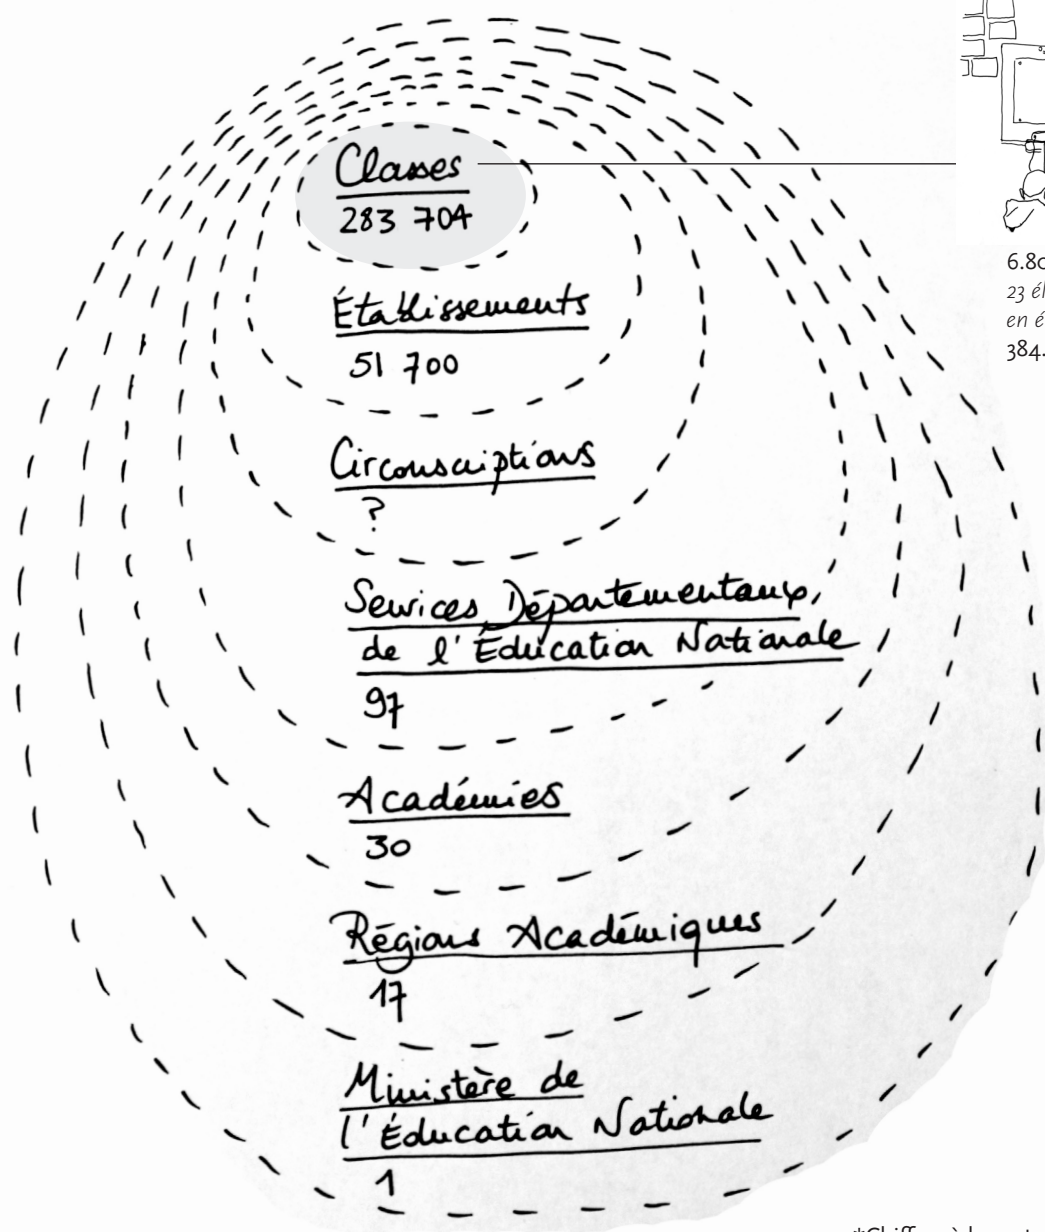 Classes
283 704
Établissements
51 700
Circonscriptions
?
Services Départementaux
de l'Éducation Nationale
97
Académies
30
Régions Académiques
17
Ministère de
l'Éducation Nationale
1
23
en
384.